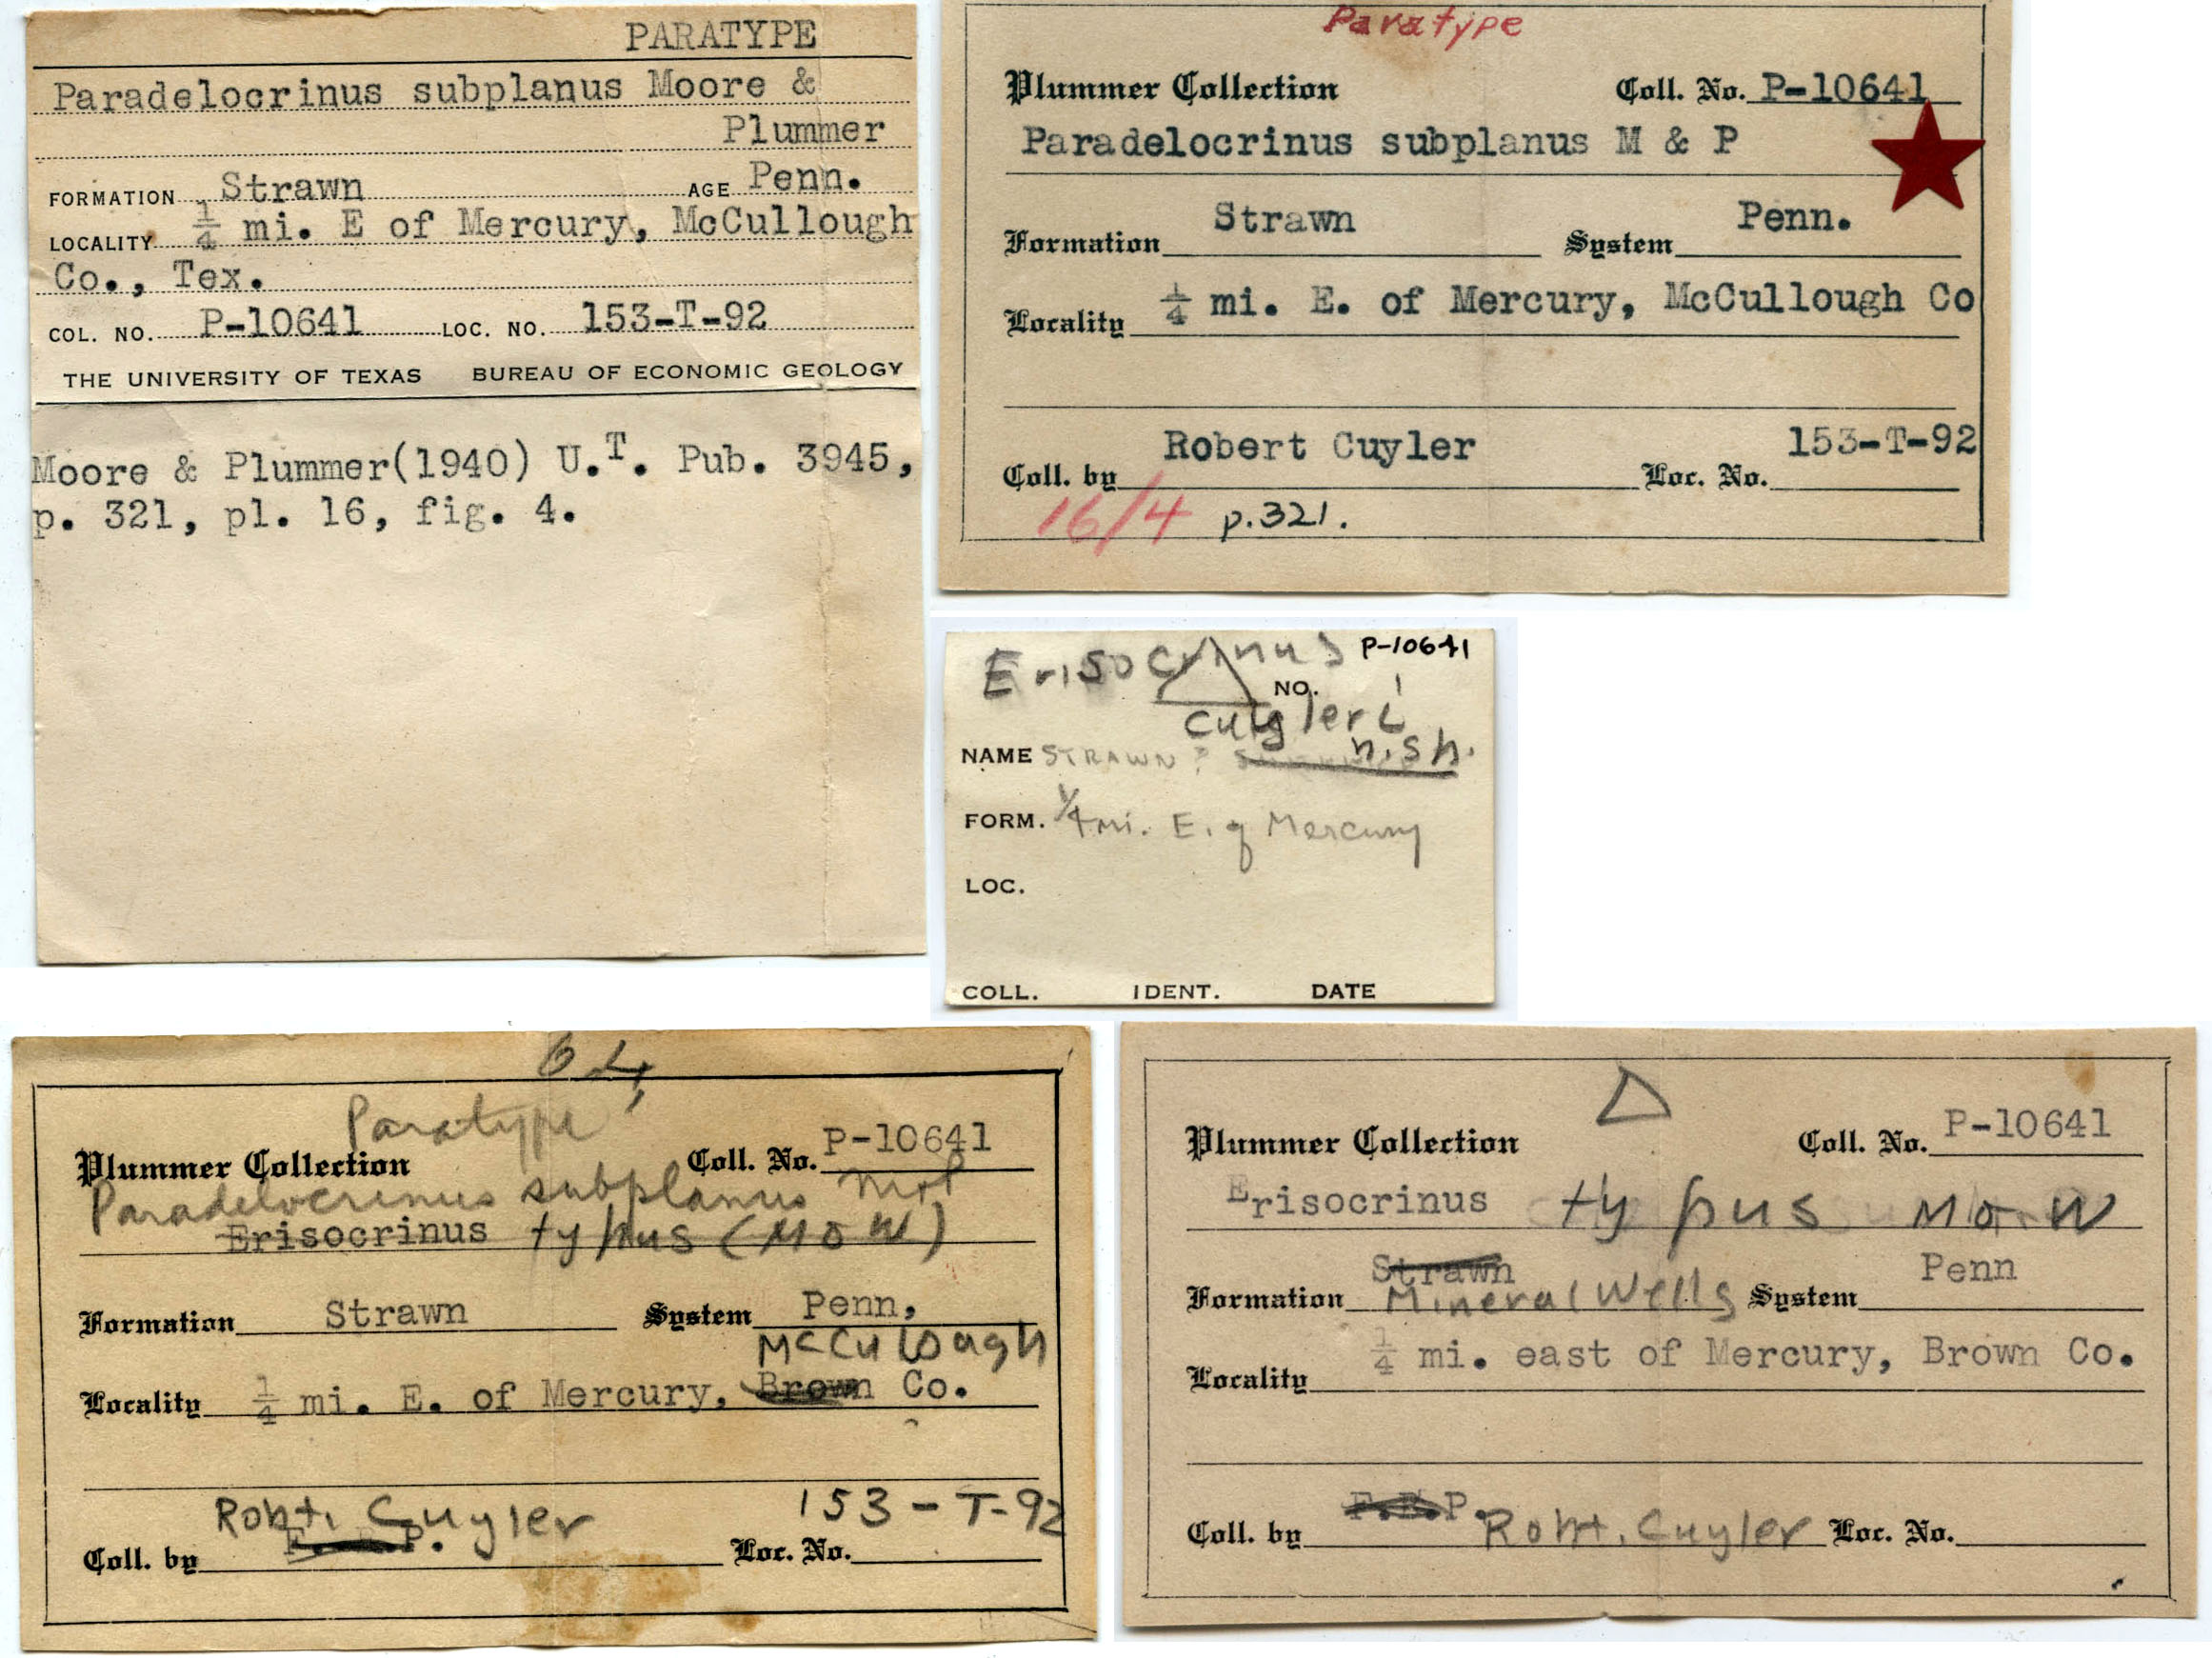 PARATYPE
Paradelocrinus subplanus Moore &
Plummer
FORMATION Strawn AGE Penn.
LOCALITY 1/4 mi. E of Mercury, McCullough
Co., Tex.
COL. NO. P-10641 LOC. NO. 153-T-92
THE UNIVERSITY OF TEXAS BUREAU OF ECONOMIC GEOLOGY
Moore & Plummer(1940) U.T. Pub. 3945,
p. 321, pl. 16, fig. 4.
Paratype
Plummer Collection Coll. No. P-10641
Paradelocrinus subplanus M & P
Formation Strawn System Penn.
Locality 1/4 mi. E. of Mercury, McCullough Co
Coll. by Robert Cuyler Loc. No. 153-T-92
16/4 p.321.
Erisocrinus P-10641
NO.
cuyleri
n.sp.
NAME STRAWN ?
FORM. 1/4 mi. E. of Mercury
LOC.
COLL. IDENT. DATE
Paratype
Plummer Collection Coll. No. P-10641
Paradelocrinus subplanus M+P
Erisocrinus typus (M & W)
Formation Strawn System Penn,
McCullough
Locality 1/4 mi. E. of Mercury, Brown Co.
Robt. Cuyler 153-T-92
Coll. by Loc. No.
Plummer Collection Coll. No. P-10641
Erisocrinus typus M & W
Strawn Penn
Formation Mineral Wells System
Locality 1/4 mi. east of Mercury, Brown Co.
Coll. by Robt. Cuyler Loc. No.